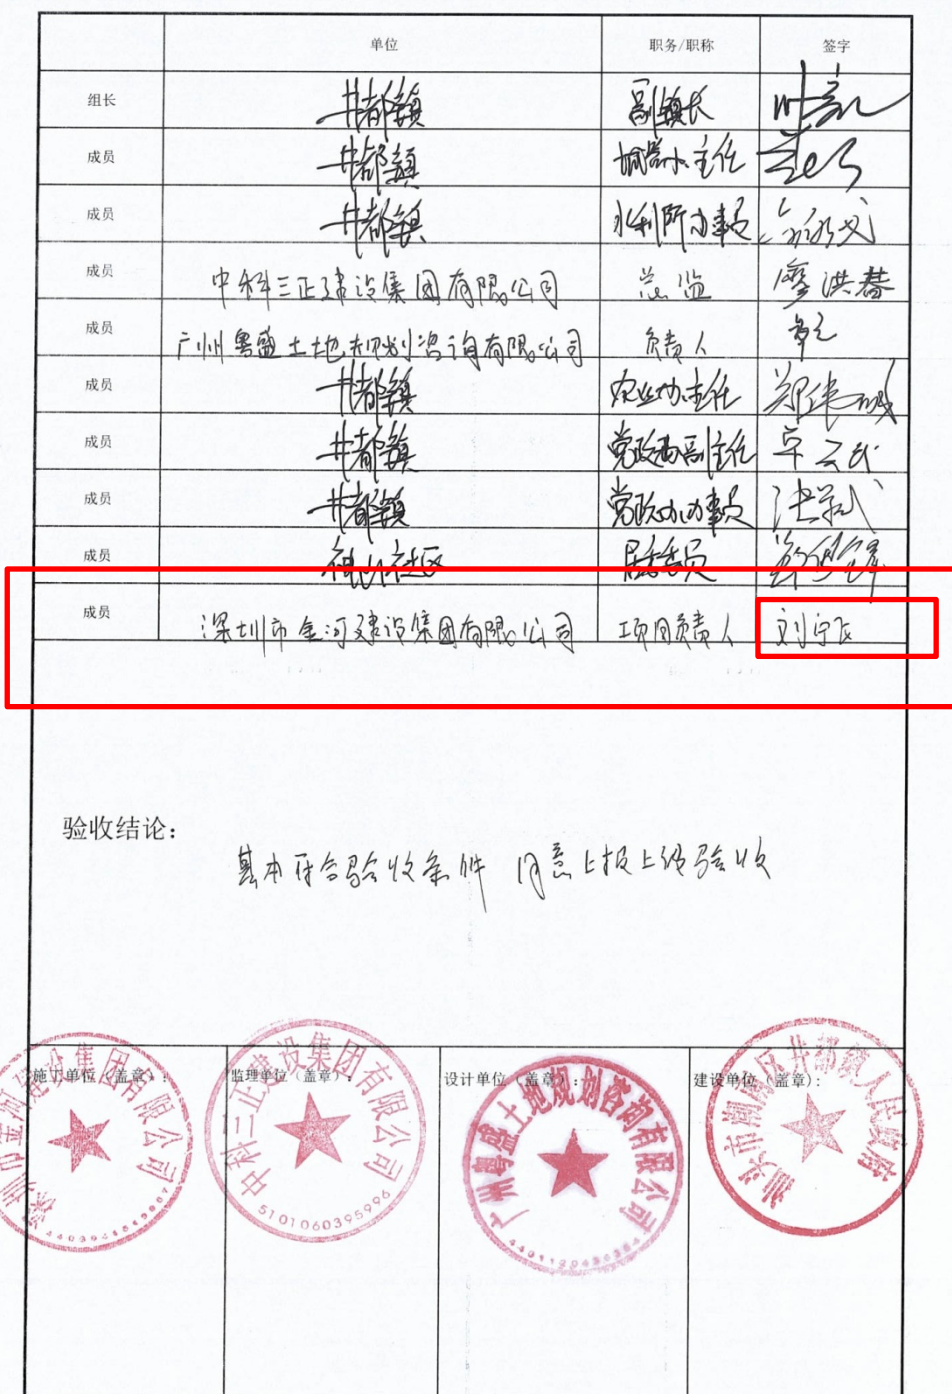 单位 职务/职称 签字
组长 井都镇 副镇长
成员 井都镇 主任
成员 井都镇 水利所办事员
成员 中科三正建设集团有限公司 总监 廖洪春
成员 广州粤盛土地规划咨询有限公司 负责人
成员 井都镇 农业办主任
成员 井都镇 党政办副主任
成员 井都镇 党政办办事员
成员 神山社区 居委委员
成员 深圳市金河建设集团有限公司 项目负责人 刘宁飞
验收结论：
基本符合验收条件 同意上报上级验收
施工单位（盖章）： 监理单位（盖章）： 设计单位（盖章）： 建设单位（盖章）：
深圳市金河建设集团有限公司
中科三正建设集团有限公司
5101060395996
广州粤盛土地规划咨询有限公司
汕头市潮南区井都镇人民政府